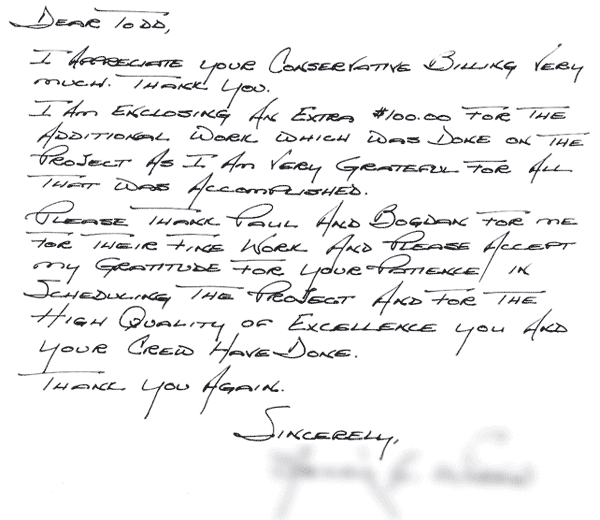 Dear Todd,
I appreciate your conservative billing very
much. Thank you.
I am enclosing an extra $100.00 for the
additional work which was done on the
project as I am very grateful for all
that was accomplished.
Please thank Paul and Bogdan for me
for their fine work and please accept
my gratitude for your patience in
scheduling the project and for the
high quality of excellence you and
your crew have done.
Thank you again.
Sincerely,